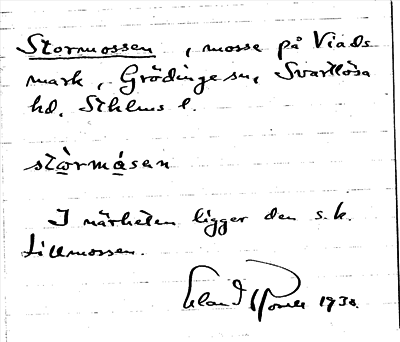 Stormossen, mosse på Viads
mark, Grödinge sn, Svartlösa
hd, Sthlms l.
stòrmåsen
I närheten ligger den s.k.
Lillmossen.
Erland 1930.